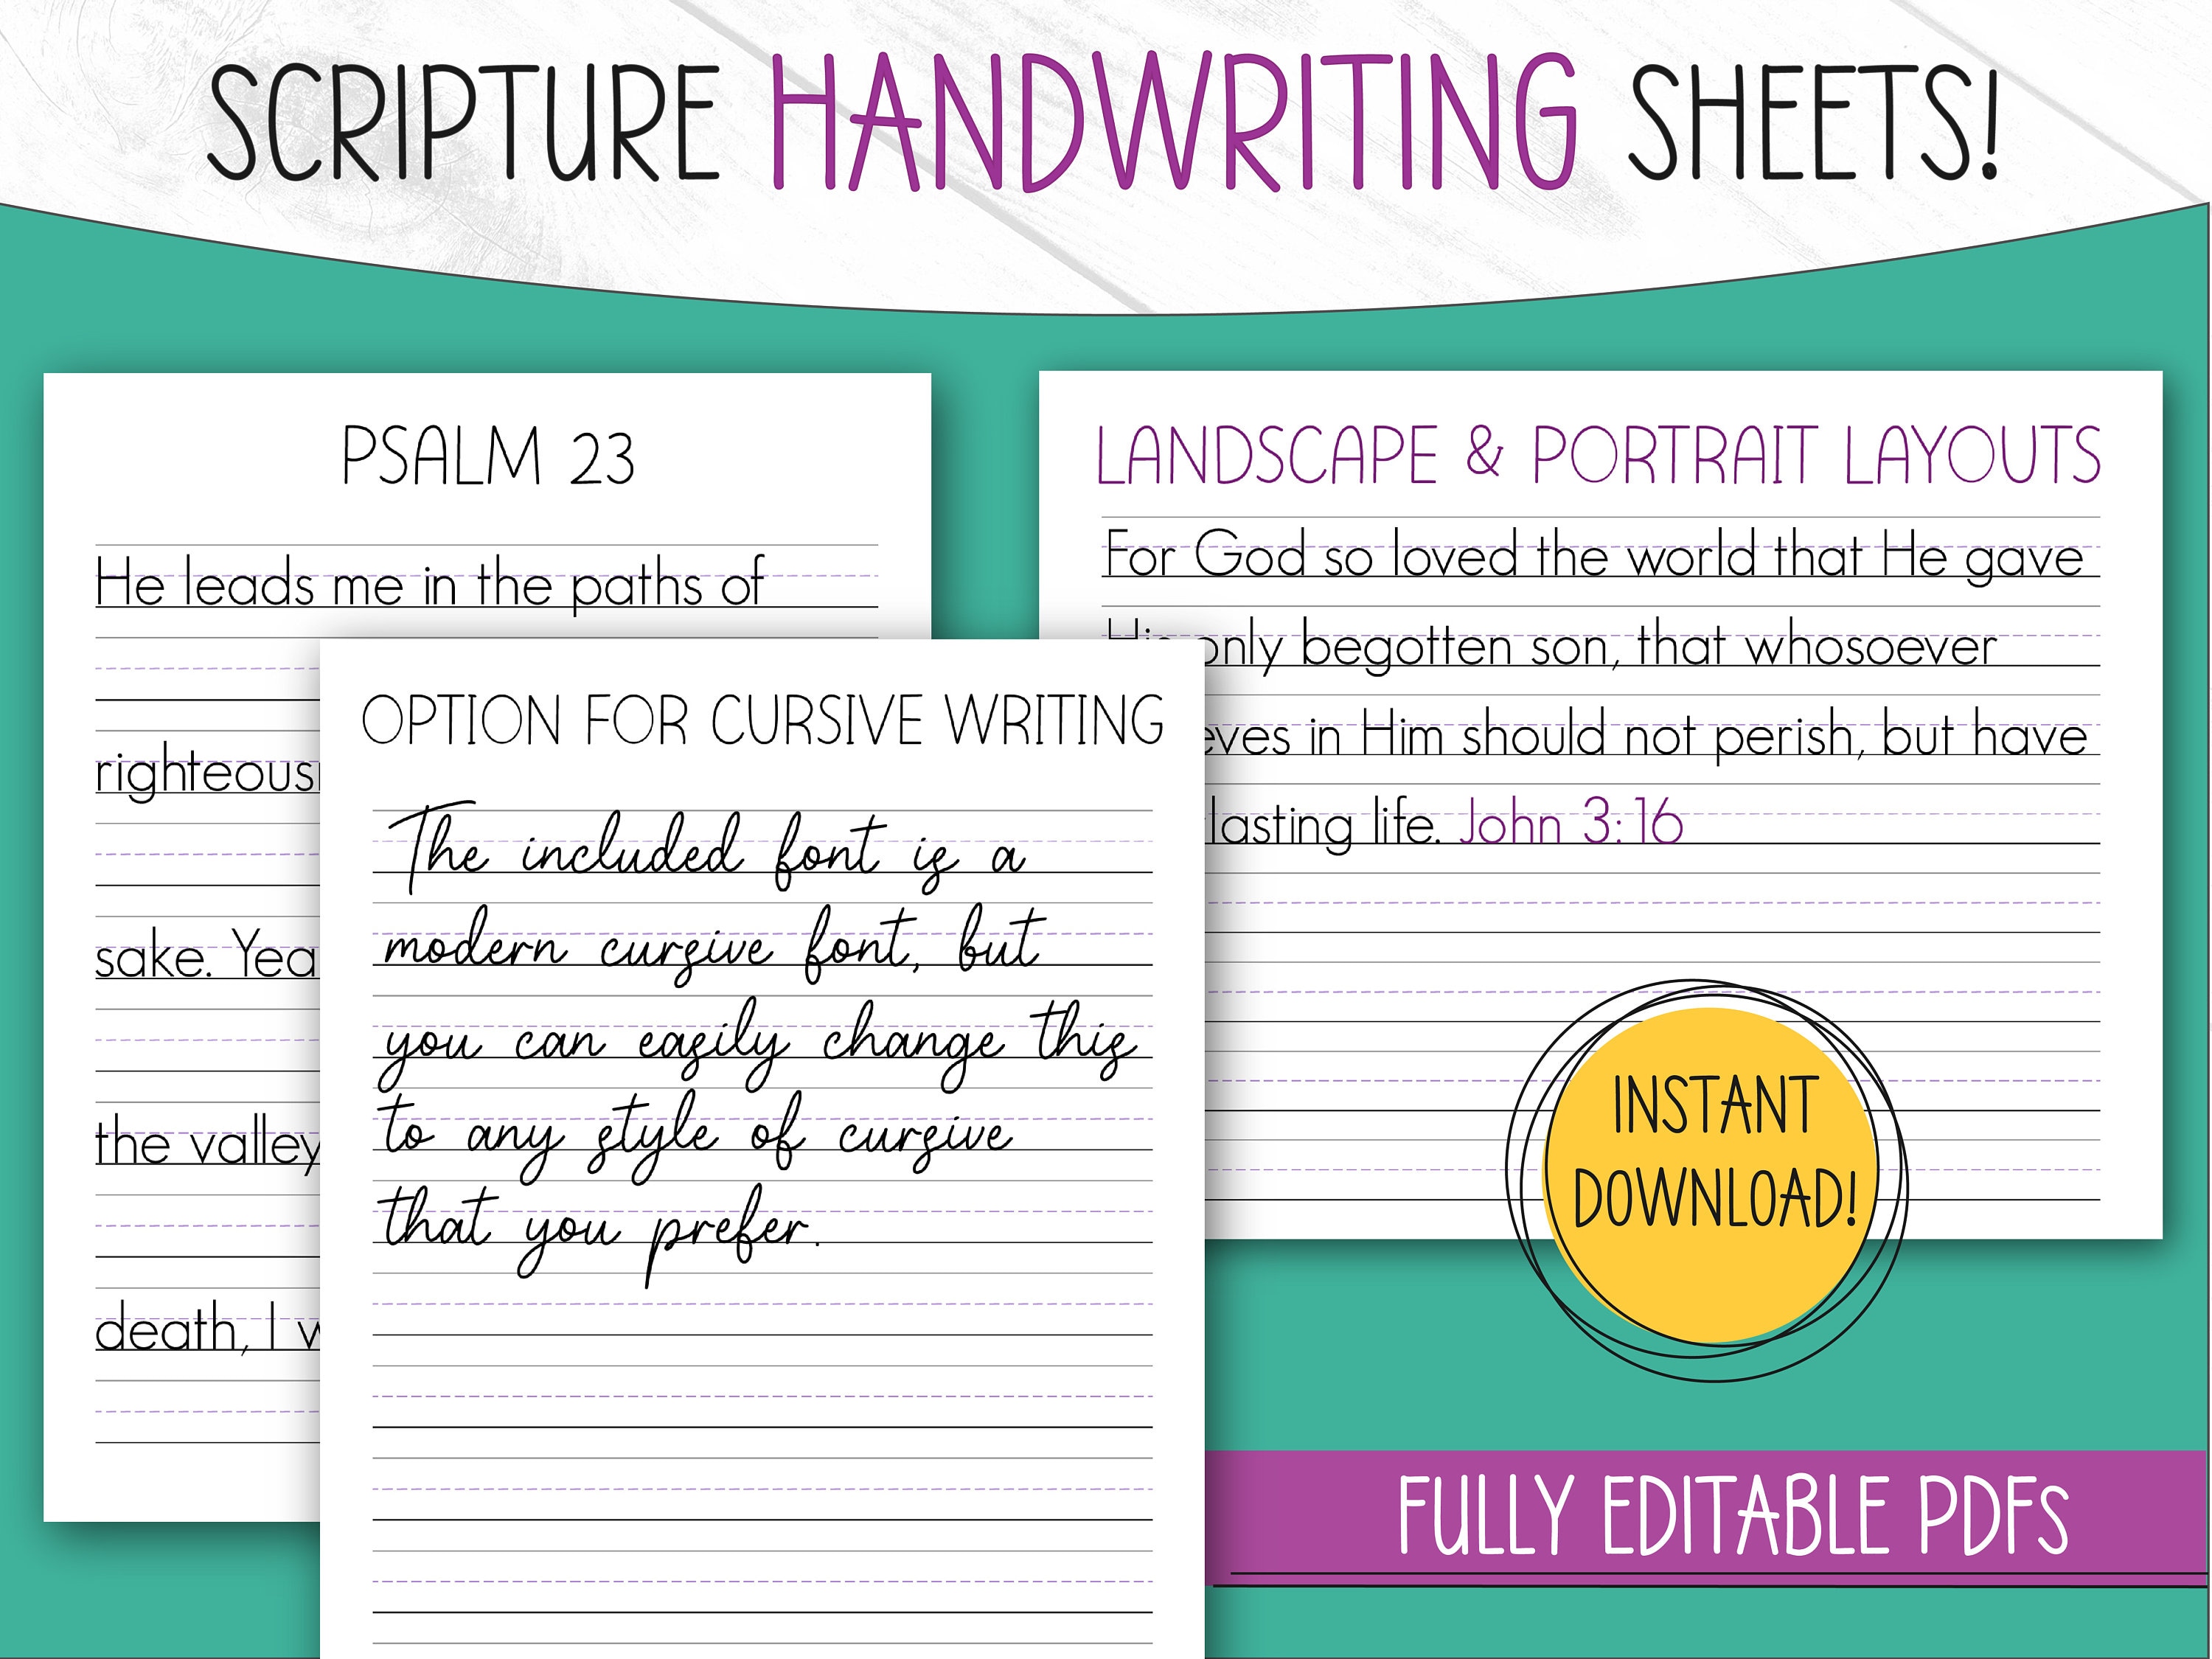 SCRIPTURE HANDWRITING SHEETS!
PSALM 23
He leads me in the paths of
sake. Yea
the valley
death, I
OPTION FOR CURSIVE WRITING
The included font is a
modern cursive font, but
you can easily change this
to any style of cursive
that you prefer.
LANDSCAPE & PORTRAIT LAYOUTS
For God so loved the world that He gave
His only begotten son, that whosoever
in Him should not perish, but have
lasting life. John 3:16
INSTANT
DOWNLOAD!
FULLY EDITABLE PDFs